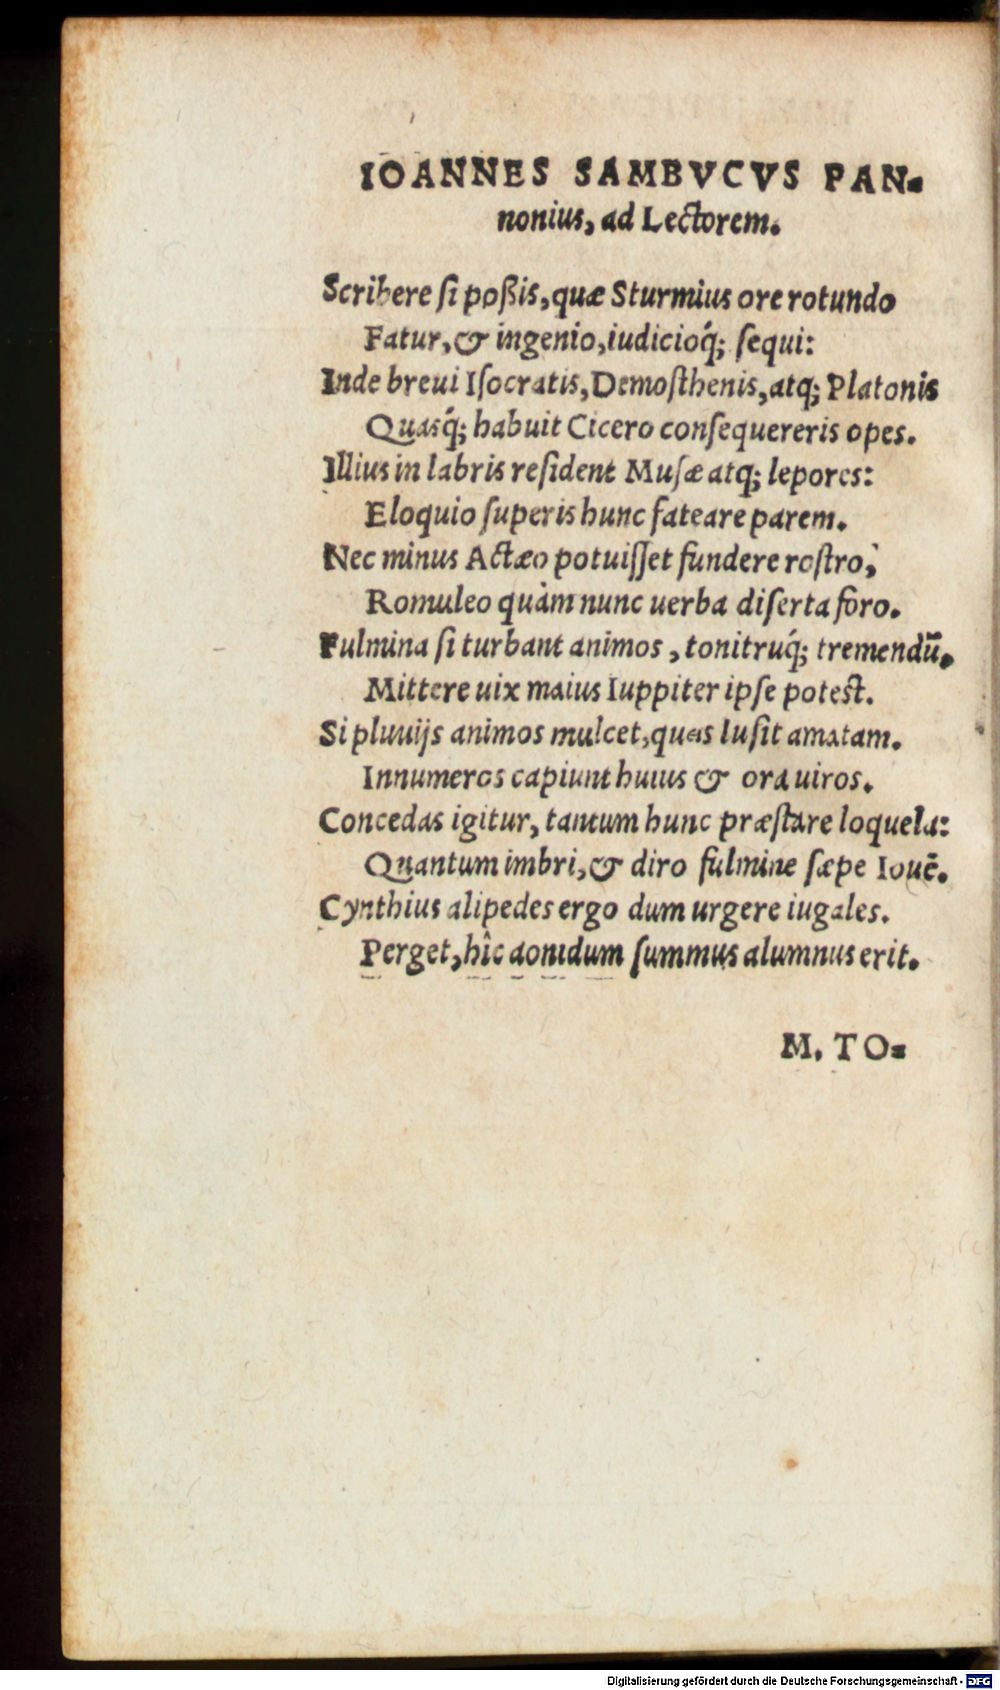 IOANNES SAMBVCVS PAN-
nonius, ad Lectorem.
Scribere ſi poßis, quæ Sturmius ore rotundo
Fatur, & ingenio, iudicioq́; ſequi:
Inde breui Iſocratis, Demoſthenis, atq; Platonis
Quasq́; habuit Cicero conſequereris opes.
Illius in labris reſident Muſæ atq; lepores:
Eloquio ſuperis hunc fateare parem.
Nec minus Actæo potuiſſet fundere roſtro,
Romuleo quàm nunc uerba diſerta foro.
Fulmina ſi turbant animos, tonitruq́; tremendū,
Mittere uix maius Iuppiter ipſe poteſt.
Si pluuijs animos mulcet, quas luſit amatam.
Innumeros capiunt huius & ora uiros.
Concedas igitur, tantum hunc præſtare loquela:
Quantum imbri, & diro fulmine ſæpe Iouē.
Cynthius alipedes ergo dum urgere iugales.
Perget, hîc aonidum ſummus alumnus erit.
M. TO-
Digitalisierung gefördert durch die Deutsche Forschungsgemeinschaft - DFG